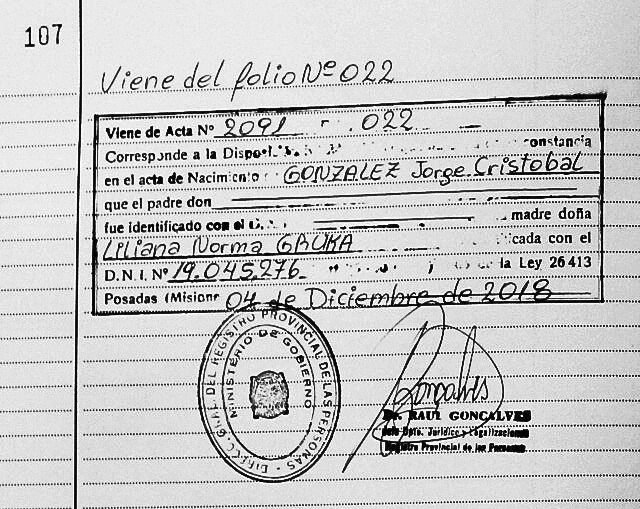 107
Viene del folio Nº 022
Viene de Acta Nº 2091 022
Corresponde a la onstancia
en el acta de Nacimiento GONZALEZ Jorge Cristobal
que el padre don
fue identificado con el madre doña
Liliana Norma GAUKA cada con el
D.N.I. Nº 19.045.276 la Ley 26413
Posadas (Misione 04 de Diciembre de 2018
DIRECC. GRAL. DEL REGISTRO PROVINCIAL DE LAS PERSONAS
MINISTERIO DE GOBIERNO
Gonçalves
Dr. RAUL GONCALVES
Dpto. Jurídico y Legalizaciones
Registro Provincial de las Personas